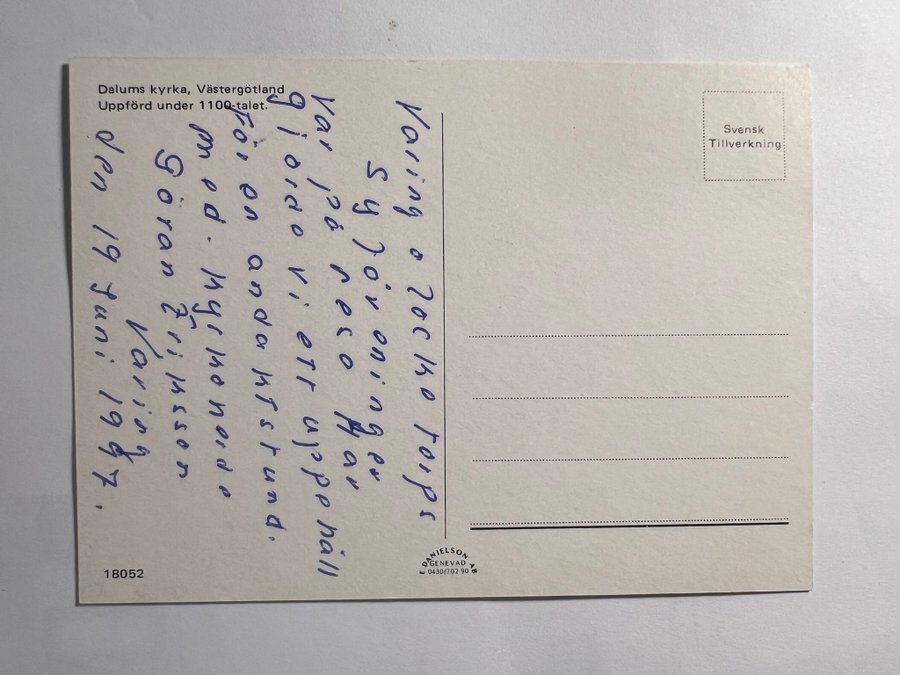 Dalums kyrka, Västergötland
Uppförd under 1100-talet.
Varing o Locketorps
syföreninger
Var på resa Här
gjorde vi ett uppehåll
För en andaktstund.
med. kyrkoherde
Göran Eriksson
Varing
den 19 Juni 1997.
Svensk
Tillverkning
18052
E DANIELSON AB
GENEVAD
0430/702 90